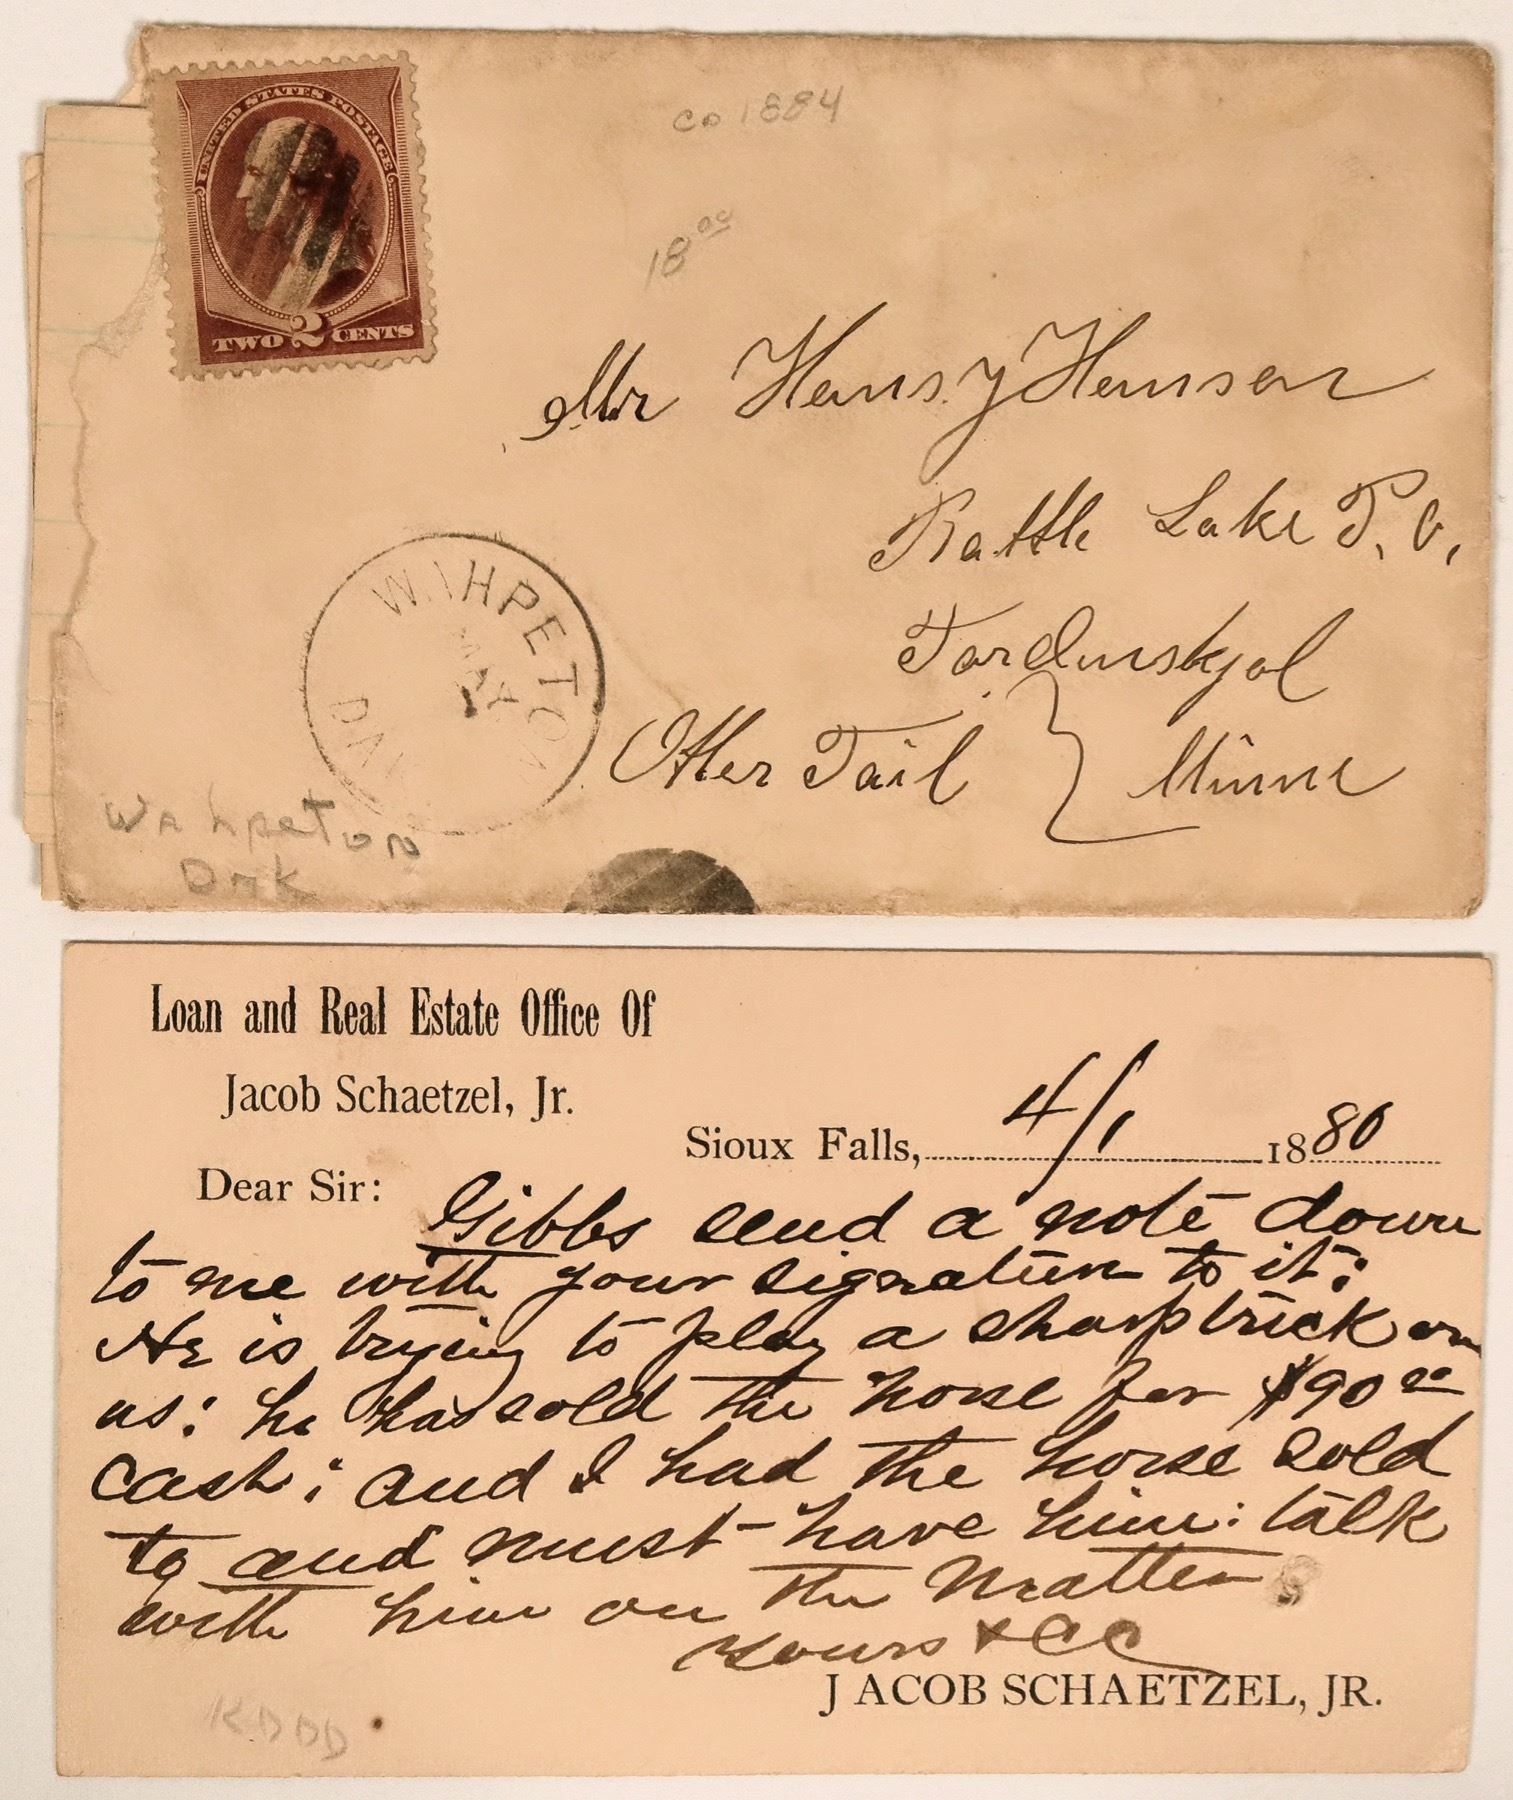 UNITED STATES POSTAGE
TWO 2 CENTS
Co 1884
18 00
Mr Hans J Hanson
Battle Lake P. O.
Tordenskjol
Otter Tail } Minne
WAHPETON
MAY
DAK
Wahpeton
Dak
Loan and Real Estate Office Of
Jacob Schaetzel, Jr.
Sioux Falls, 4/1 1880
Dear Sir: Gibbs send a note down
to me with your signature to it:
He is trying to play a sharp trick on
us: he has sold the horse for $90 00
cash: and I had the horse sold
to and must have him: talk
with him on the matter
Yours &CC
JACOB SCHAETZEL, JR.